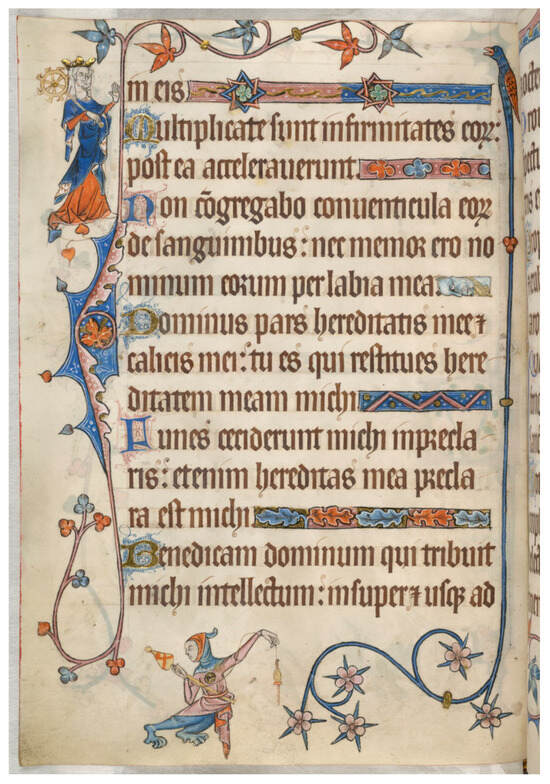 in eis
Multiplicate sunt infirmitates eoꝝ:
post ea accelerauerunt
Non cōgregabo conuenticula eoꝝ
de sanguinibus : nec memor ero no
minum eorum per labia mea
Dominus pars hereditatis mee ⁊
calicis mei : tu es qui restitues here
ditatem meam michi
Funes ceciderunt michi in precla
ris : etenim hereditas mea precla
ra est michi
Benedicam dominum qui tribuit
michi intellectum : insuper ⁊ usqꝫ ad